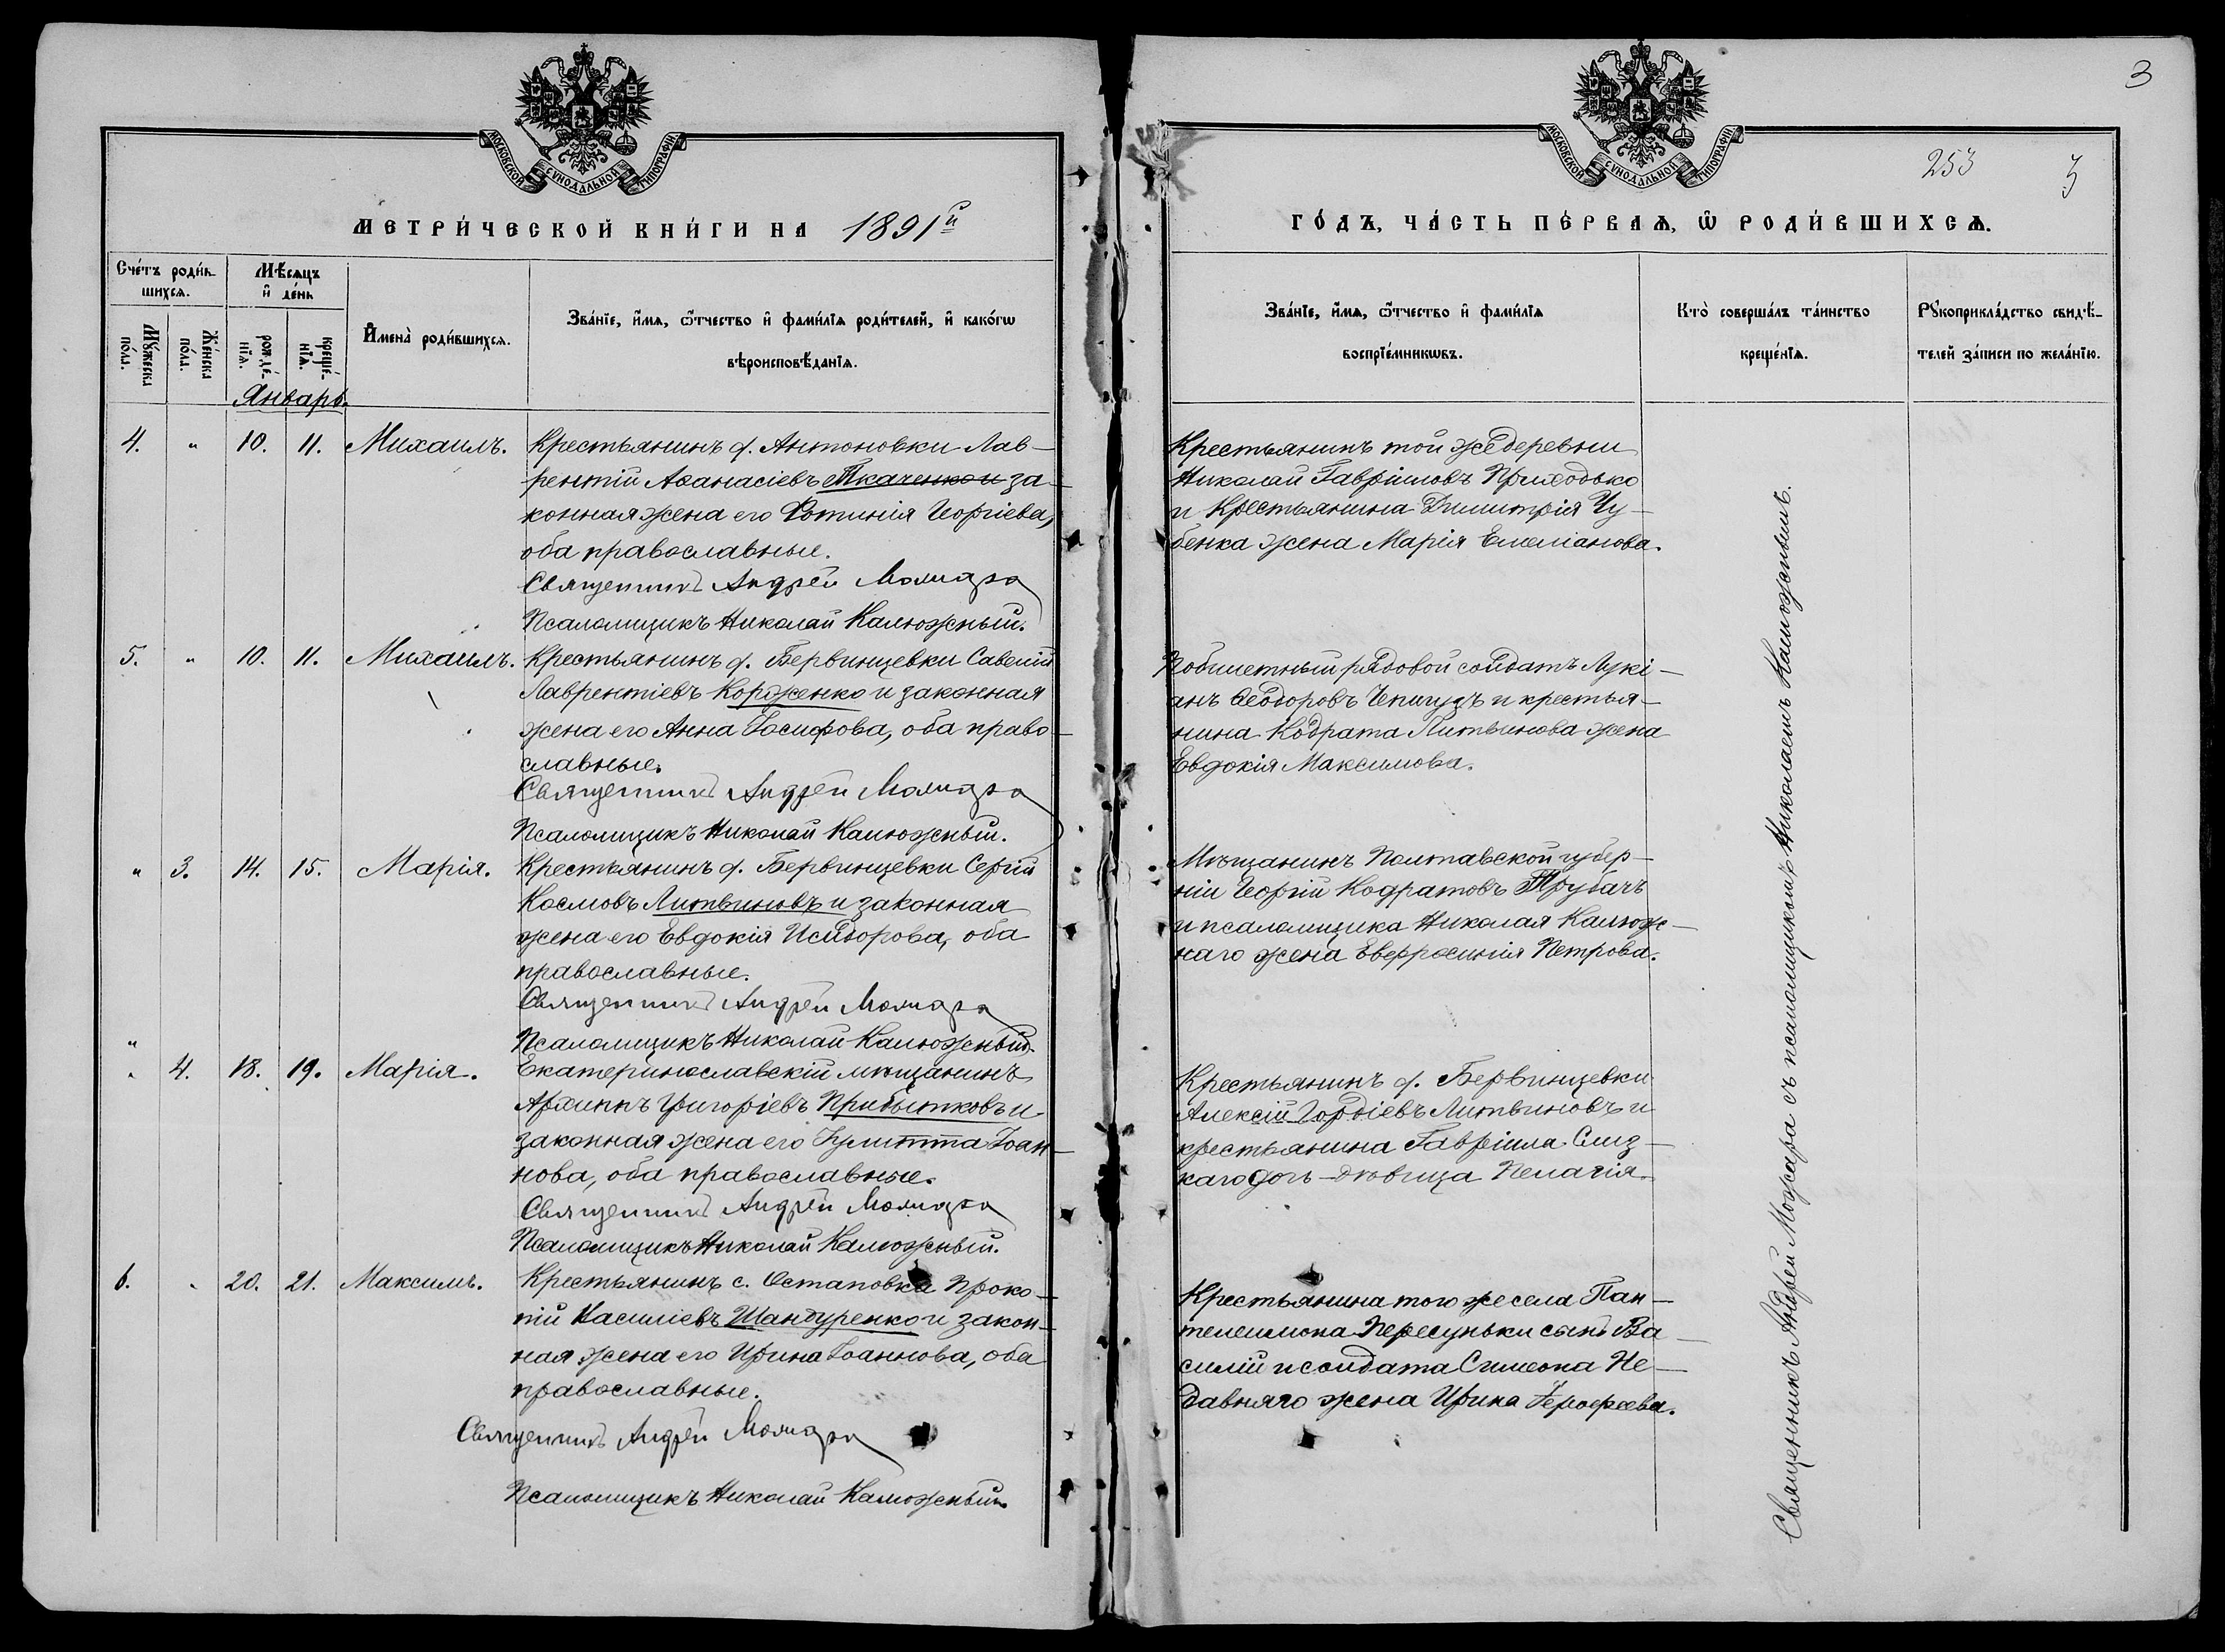 МОСКОВСКОЙ СѴНОДАЛЬНОЙ ТИПОГРАФІИ
МЕТРИ́ЧЕСКОЙ КНИ́ГИ НА 1891й
Сче́тъ роди́в-
шихся.
Мѣ́сяцъ
и҆ де́нь
Мꙋ́жеска
по́ла.
Же́нска
по́ла.
рожде́-
нїя.
креще́-
нїя.
И҆мена̀ роди́вшихся.
Зва́нїе, и҆́мя, ѻ҆́тчество и҆ фами́лїя роди́телей, и҆ како́гѡ
вѣроисповѣ́данїя.
Январь.
4. " 10. 11. Михаилъ. Крестьянинъ д. Антоновки Лав-
рентій Аѳанасіевъ Ткаченко и за-
конная жена его Фотинія Георгіева,
оба православные.
Священникъ Андрей Можара
Псаломщикъ Николай Калюжный.
5. " 10. 11. Михаилъ. Крестьянинъ д. Бервинцевки Савелій
Лаврентіевъ Корженко и законная
жена его Анна Іосифова, оба право-
славные.
Священникъ Андрей Можара
Псаломщикъ Николай Калюжный.
" 3. 14. 15. Марія. Крестьянинъ д. Бервинцевки Сергій
Космовъ Литвиновъ и законная
жена его Евдокія Исидорова, оба
православные.
Священникъ Андрей Можара
Псаломщикъ Николай Калюжный.
" 4. 18. 19. Марія. Екатеринославскій мѣщанинъ
Архиппъ Григоріевъ Прибытковъ и
законная жена его Іулитта Іоан-
нова, оба православные.
Священникъ Андрей Можара
Псаломщикъ Николай Калюжный.
6. " 20. 21. Максимъ. Крестьянинъ с. Остаповки Проко-
пій Василіевъ Шандуренко и закон-
ная жена его Ирина Іоаннова, оба
православные.
Священникъ Андрей Можара
Псаломщикъ Николай Калюжный.
3
МОСКОВСКОЙ СѴНОДАЛЬНОЙ ТИПОГРАФІИ
253 3
ГО́ДЪ, ЧА́СТЬ ПЕ́РВАЯ, Ѡ҆ РОДИ́ВШИХСЯ.
Зва́нїе, и҆́мя, ѻ҆́тчество и҆ фами́лїя
воспрїе́мникѡвъ.
Кто̀ соверша́лъ та́инство
креще́нїя.
Рꙋкоприкла́дство свидѣ́-
телей за́писи по жела́нїю.
Крестьянинъ той же деревни
Николай Гавріиловъ Приходько
и крестьянина Димитрія Чу-
бенка жена Марія Емеліанова.
рядовой солдатъ Лукі-
анъ Ѳеодоровъ и крестья-
нина Кодрата Литвинова жена
Евдокія Максимова.
Мѣщанинъ Полтавской губер-
ніи Георгій Кодратовъ Трубачъ
и псаломщика Николая Калюж-
наго жена Евфросинія Петрова.
Крестьянинъ д. Бервинцевки
Алексій Гордіевъ Литвиновъ и
крестьянина Гавріила Слиз-
каго дочь-дѣвица Пелагія.
Крестьянина того же села Пан-
телеимона Пересуньки сынъ Ва-
силій и солдата Симеона Не-
давняго жена Ирина Герофеева.
Священникъ Андрей Можара съ псаломщикомъ Николаемъ Калюжнымъ.